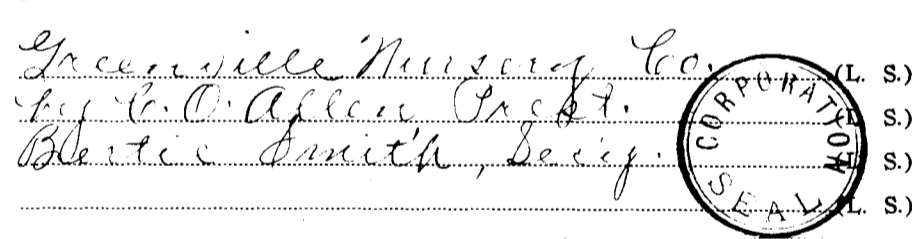 Greenville Nursery Co. (L. S.)
by C. O. Allen Prest. (L. S.)
Bertie Smith, Sec'y. (L. S.)
(L. S.)
CORPORATION
SEAL